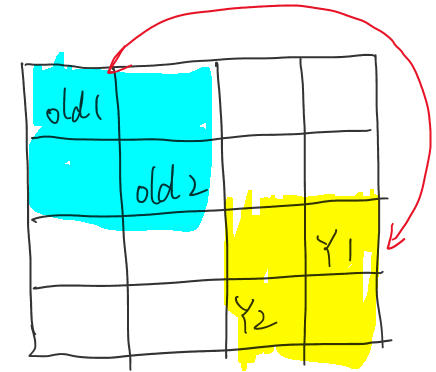 old1
old2
Y1
Y2